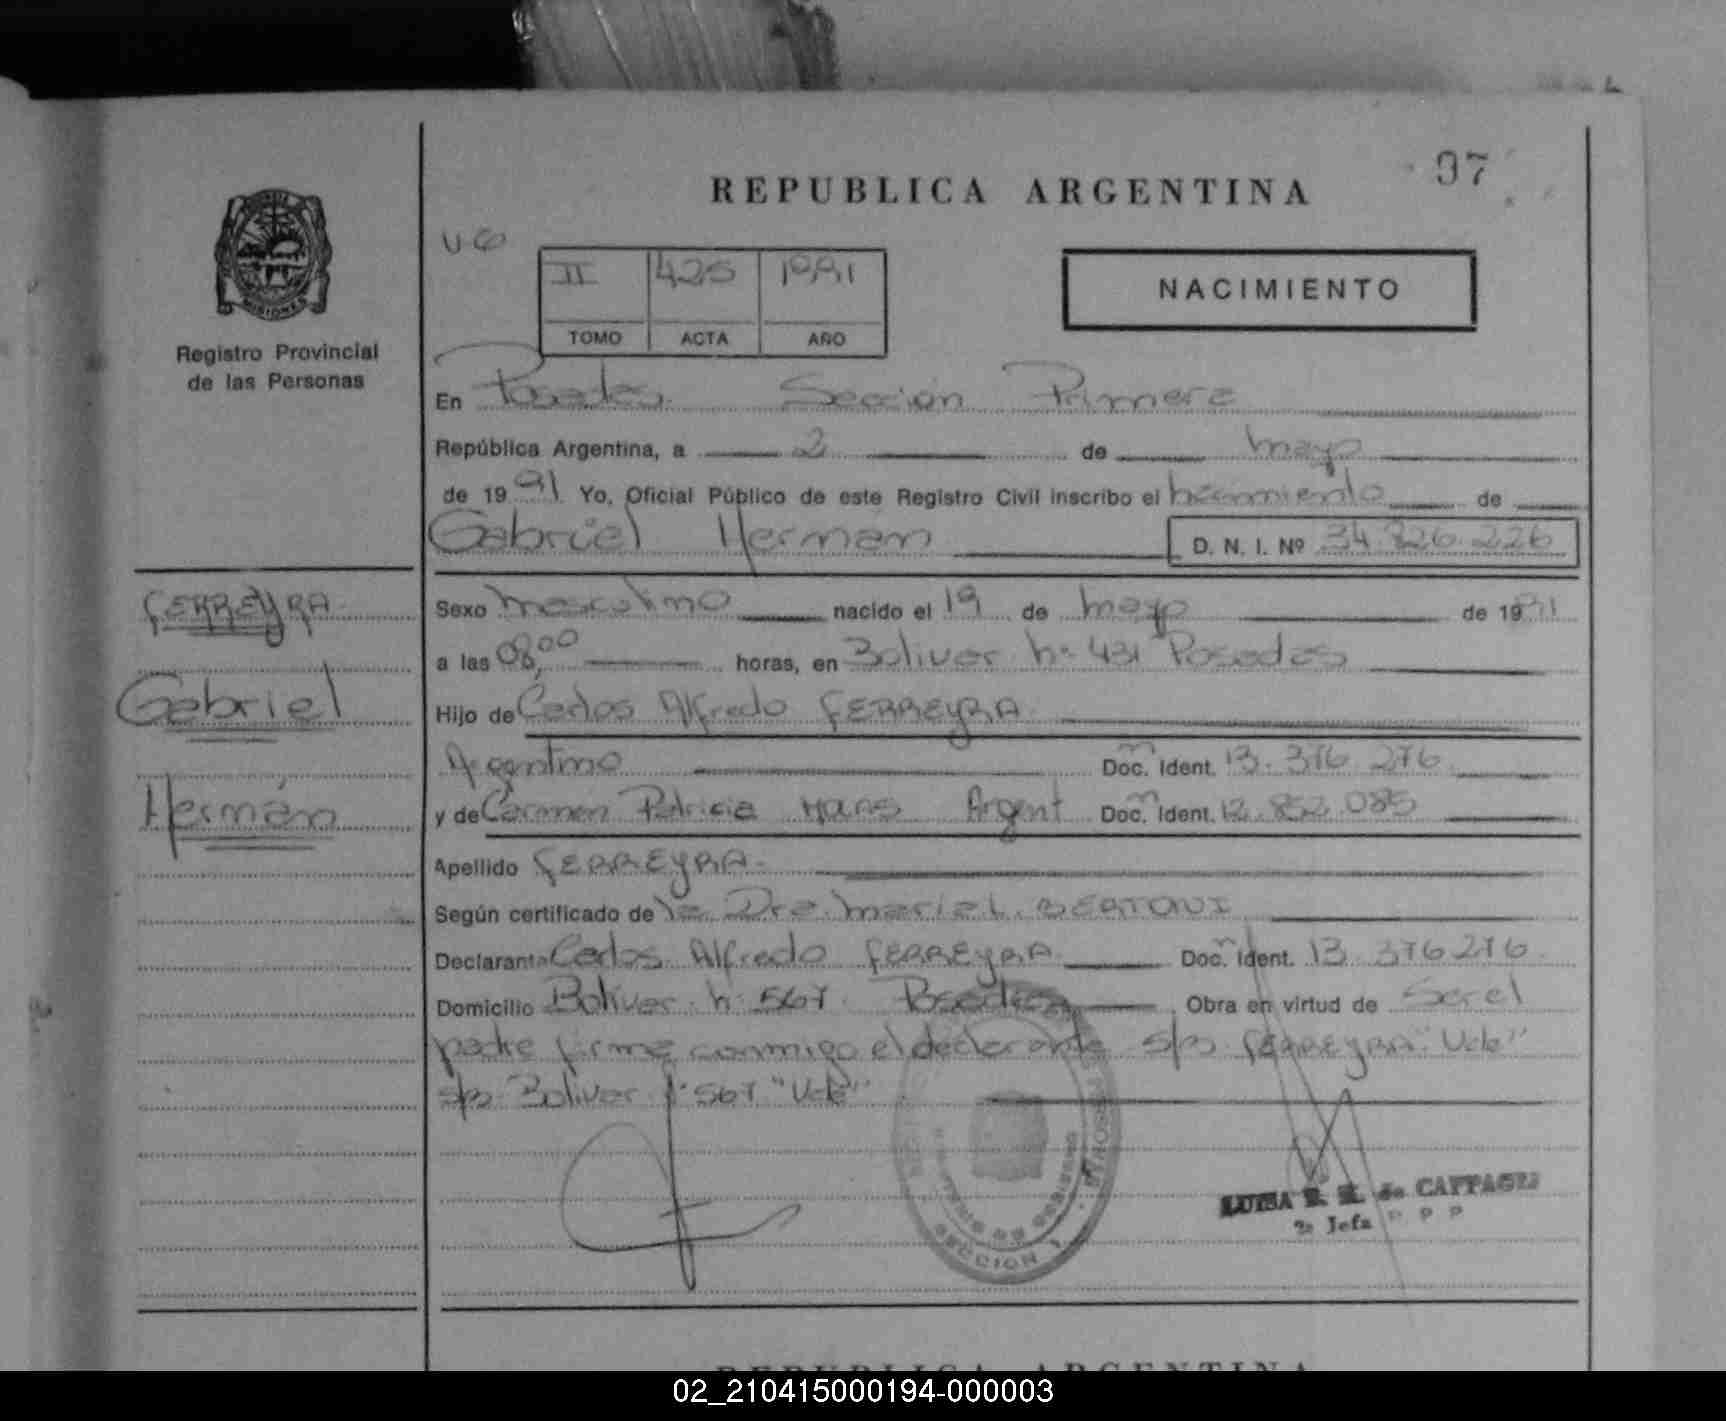 REPUBLICA ARGENTINA
97
MISIONES
Registro Provincial
de las Personas
II 425 1991
TOMO ACTA AÑO
NACIMIENTO
En Posadas Sección Primera
República Argentina, a 2 de mayo
de 1991 Yo, Oficial Público de este Registro Civil inscribo el nacimiento de
Gabriel Hernán D. N. I. Nº 34.826.226
FERREYRA
Gabriel
Hernán
Sexo masculino nacido el 19 de mayo de 1991
a las 08,00 horas, en Bolivar nº 431 Posadas
Hijo de Carlos Alfredo FERREYRA
Argentino Doc. Ident. 13.376.276
y de Carmen Patricia Argent Doc. Ident. 12.852.085
Apellido FERREYRA
Según certificado de la Dra. Maria L. BERTONI
Declarante Carlos Alfredo FERREYRA Doc. Ident. 13.376.276
Domicilio Bolivar nº 567 Posadas Obra en virtud de Ser el
padre firma conmigo el declarante s/b FERREYRA "Vale"
s/b Bolivar nº 567 "Vale"
SECCION 1
LUISA de
2ª Jefa
REPUBLICA ARGENTINA
02_210415000194-000003